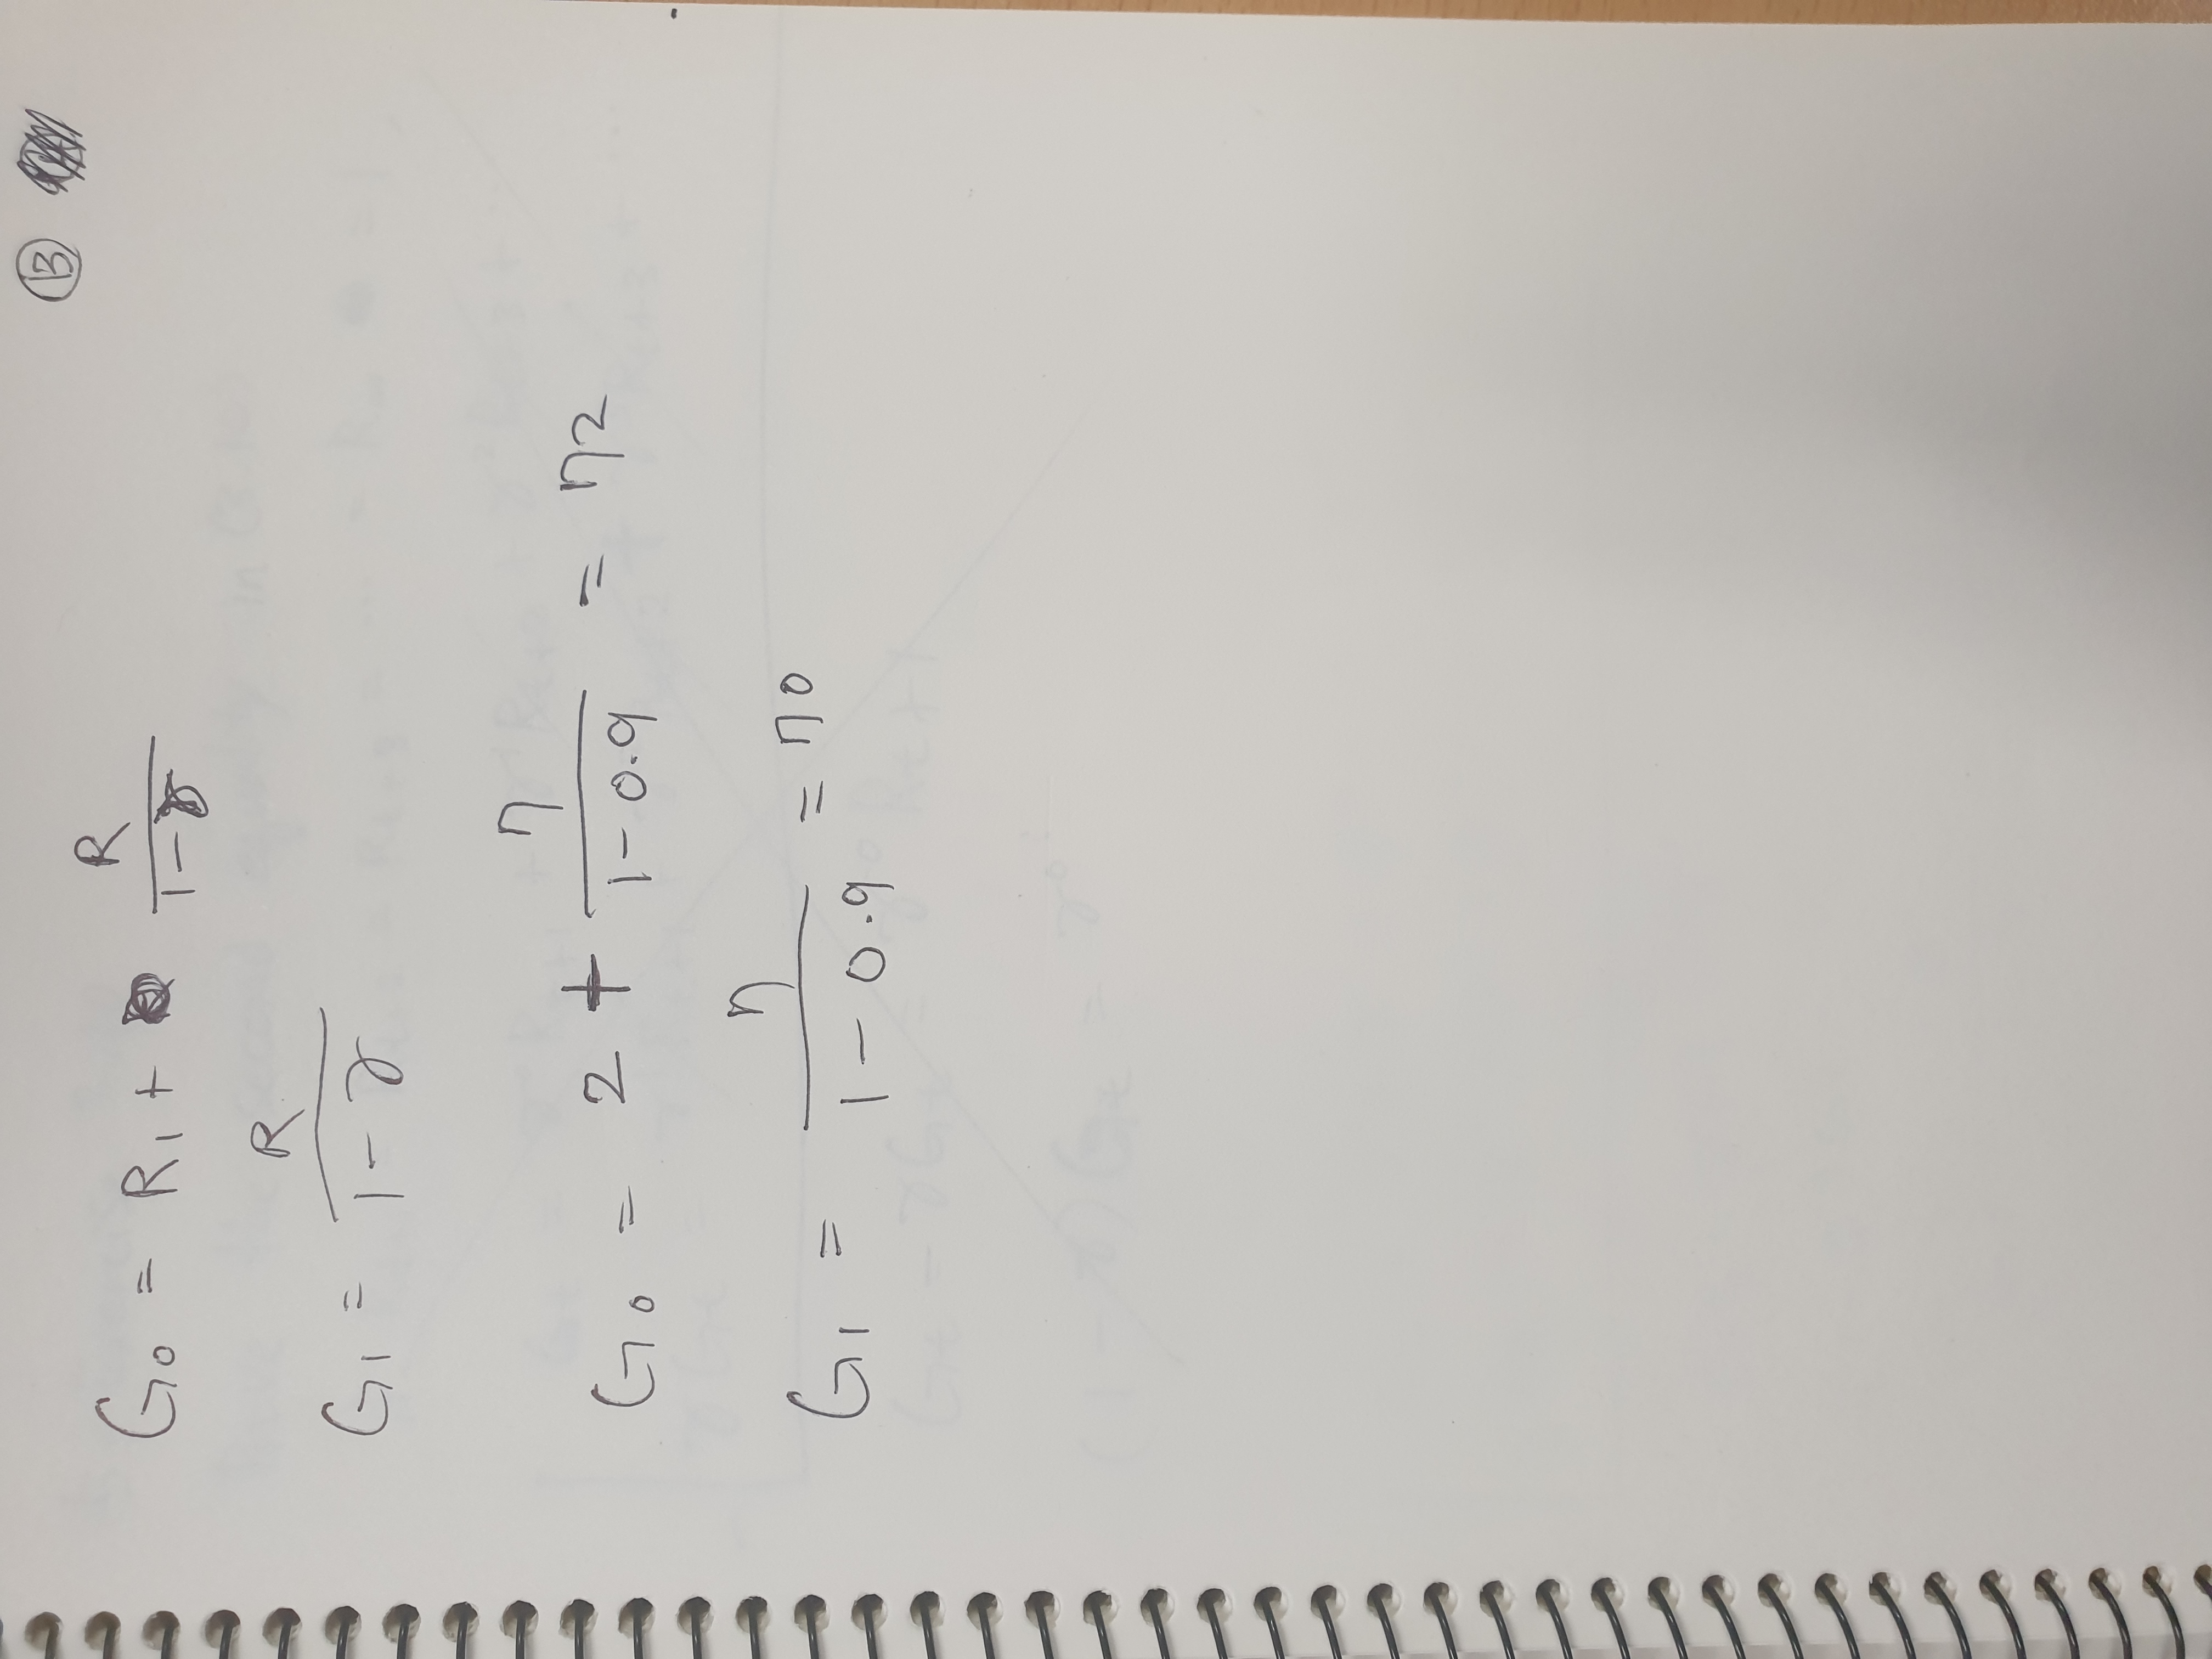 ⑬
G₀ = R₁ + R / (1-γ)
G₁ = R / (1-γ)
G₀ = 2 + 7 / (1-0.9) = 72
G₁ = 7 / (1-0.9) = 70